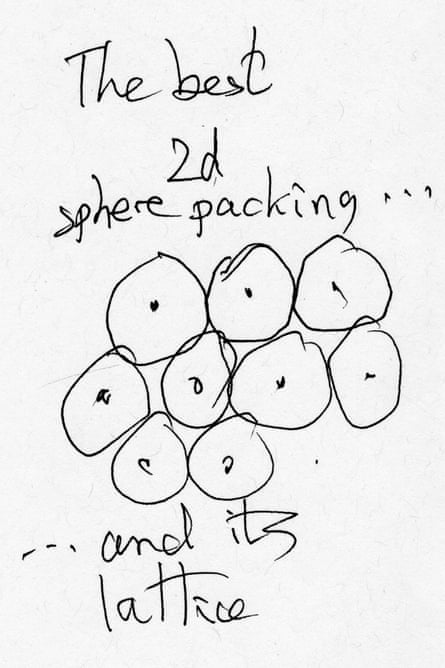 The best
2d
sphere packing ...
... and its
lattice